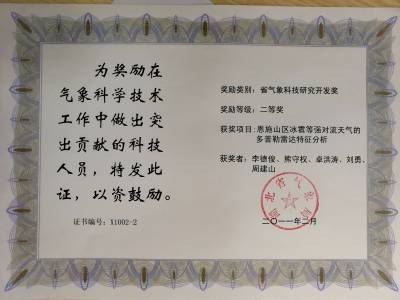 为奖励在
气象科学技术
工作中做出突
出贡献的科技
人员，特发此
证，以资鼓励。
证书编号：X1002-2
奖励类别：省气象科技研究开发奖
奖励等级：二等奖
获奖项目：恩施山区冰雹等强对流天气的
多普勒雷达特征分析
获奖者：李德俊、熊守权、卓洪涛、刘勇、
周建山
湖北省气象局
二〇一一年二月